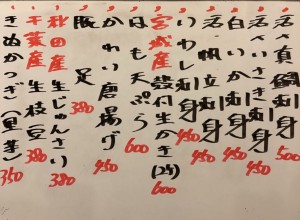 活〆真鯛刺身 500
活〆いか刺身 450
白いか刺身 500
活帆立刺身 450
いわし刺身 450
宮城産 殻付生かき(2ヶ) 600
はも天ぷら 600
かれい唐揚げ 450
豚足 380
秋田産 生じゅんさい 380
千葉産 生枝豆 380
きぬかつぎ(里芋) 350